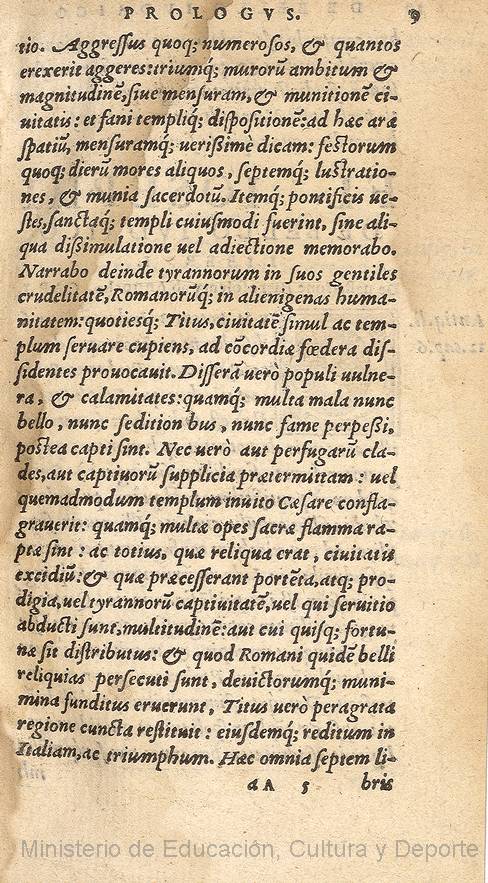 PROLOGVS. 9
tio. Aggreſſus quoq; numeroſos, & quantos
erexerit aggeres: triumq́; murorũ ambitum &
magnitudinẽ, ſiue menſuram, & munitionẽ ci-
uitatis: et fani templiq́; diſpoſitionẽ: ad hæc aræ
ſpatiũ, menſuramq́; verißimè dicam: feſtorum
quoq; dierũ mores aliquos, ſeptemq́; luſtratio-
nes, & munia ſacerdotũ. Itemq́; pontificis ue-
ſtes, ſanctaq́; templi cuiuſmodi fuerint, ſine ali-
qua dißimulatione uel adiectione memorabo.
Narrabo deinde tyrannorum in ſuos gentiles
crudelitatẽ, Romanorũq́; in alienigenas huma-
nitatem: quotieſq́; Titus, ciuitatẽ ſimul ac tem-
plum ſeruare cupiens, ad cõcordiæ fœdera diſ-
ſidentes prouocauit. Diſſerã uerò populi uulne-
ra, & calamitates: quamq́; multa mala nunc
bello, nunc ſedition bus, nunc fame perpeßi,
poſtea capti ſint. Nec uerò aut perfugarũ cla-
des, aut captiuorũ ſupplicia prætermittam: uel
quemadmodum templum inuito Cæſare confla-
grauerit: quamq́; multæ opes ſacræ flamma ra-
ptæ ſint: ac totius, quæ reliqua erat, ciuitatis
excidiũ: & quæ præceſſerant portẽta, atq; pro-
digia, uel tyrannorũ captiuitatẽ, uel qui ſeruitio
abducti ſunt, multitudinẽ: aut cui quiſq; fortu-
næ ſit diſtributus: & quod Romani quidẽ belli
reliquias perſecuti ſunt, deuictorumq́; muni-
mina funditus eruerunt, Titus uerò peragrata
regione cuncta reſtituit: eiuſdemq́; reditum in
Italiam, ac triumphum. Hæc omnia ſeptem li-
aA 5 bris
Ministerio de Educación, Cultura y Deporte